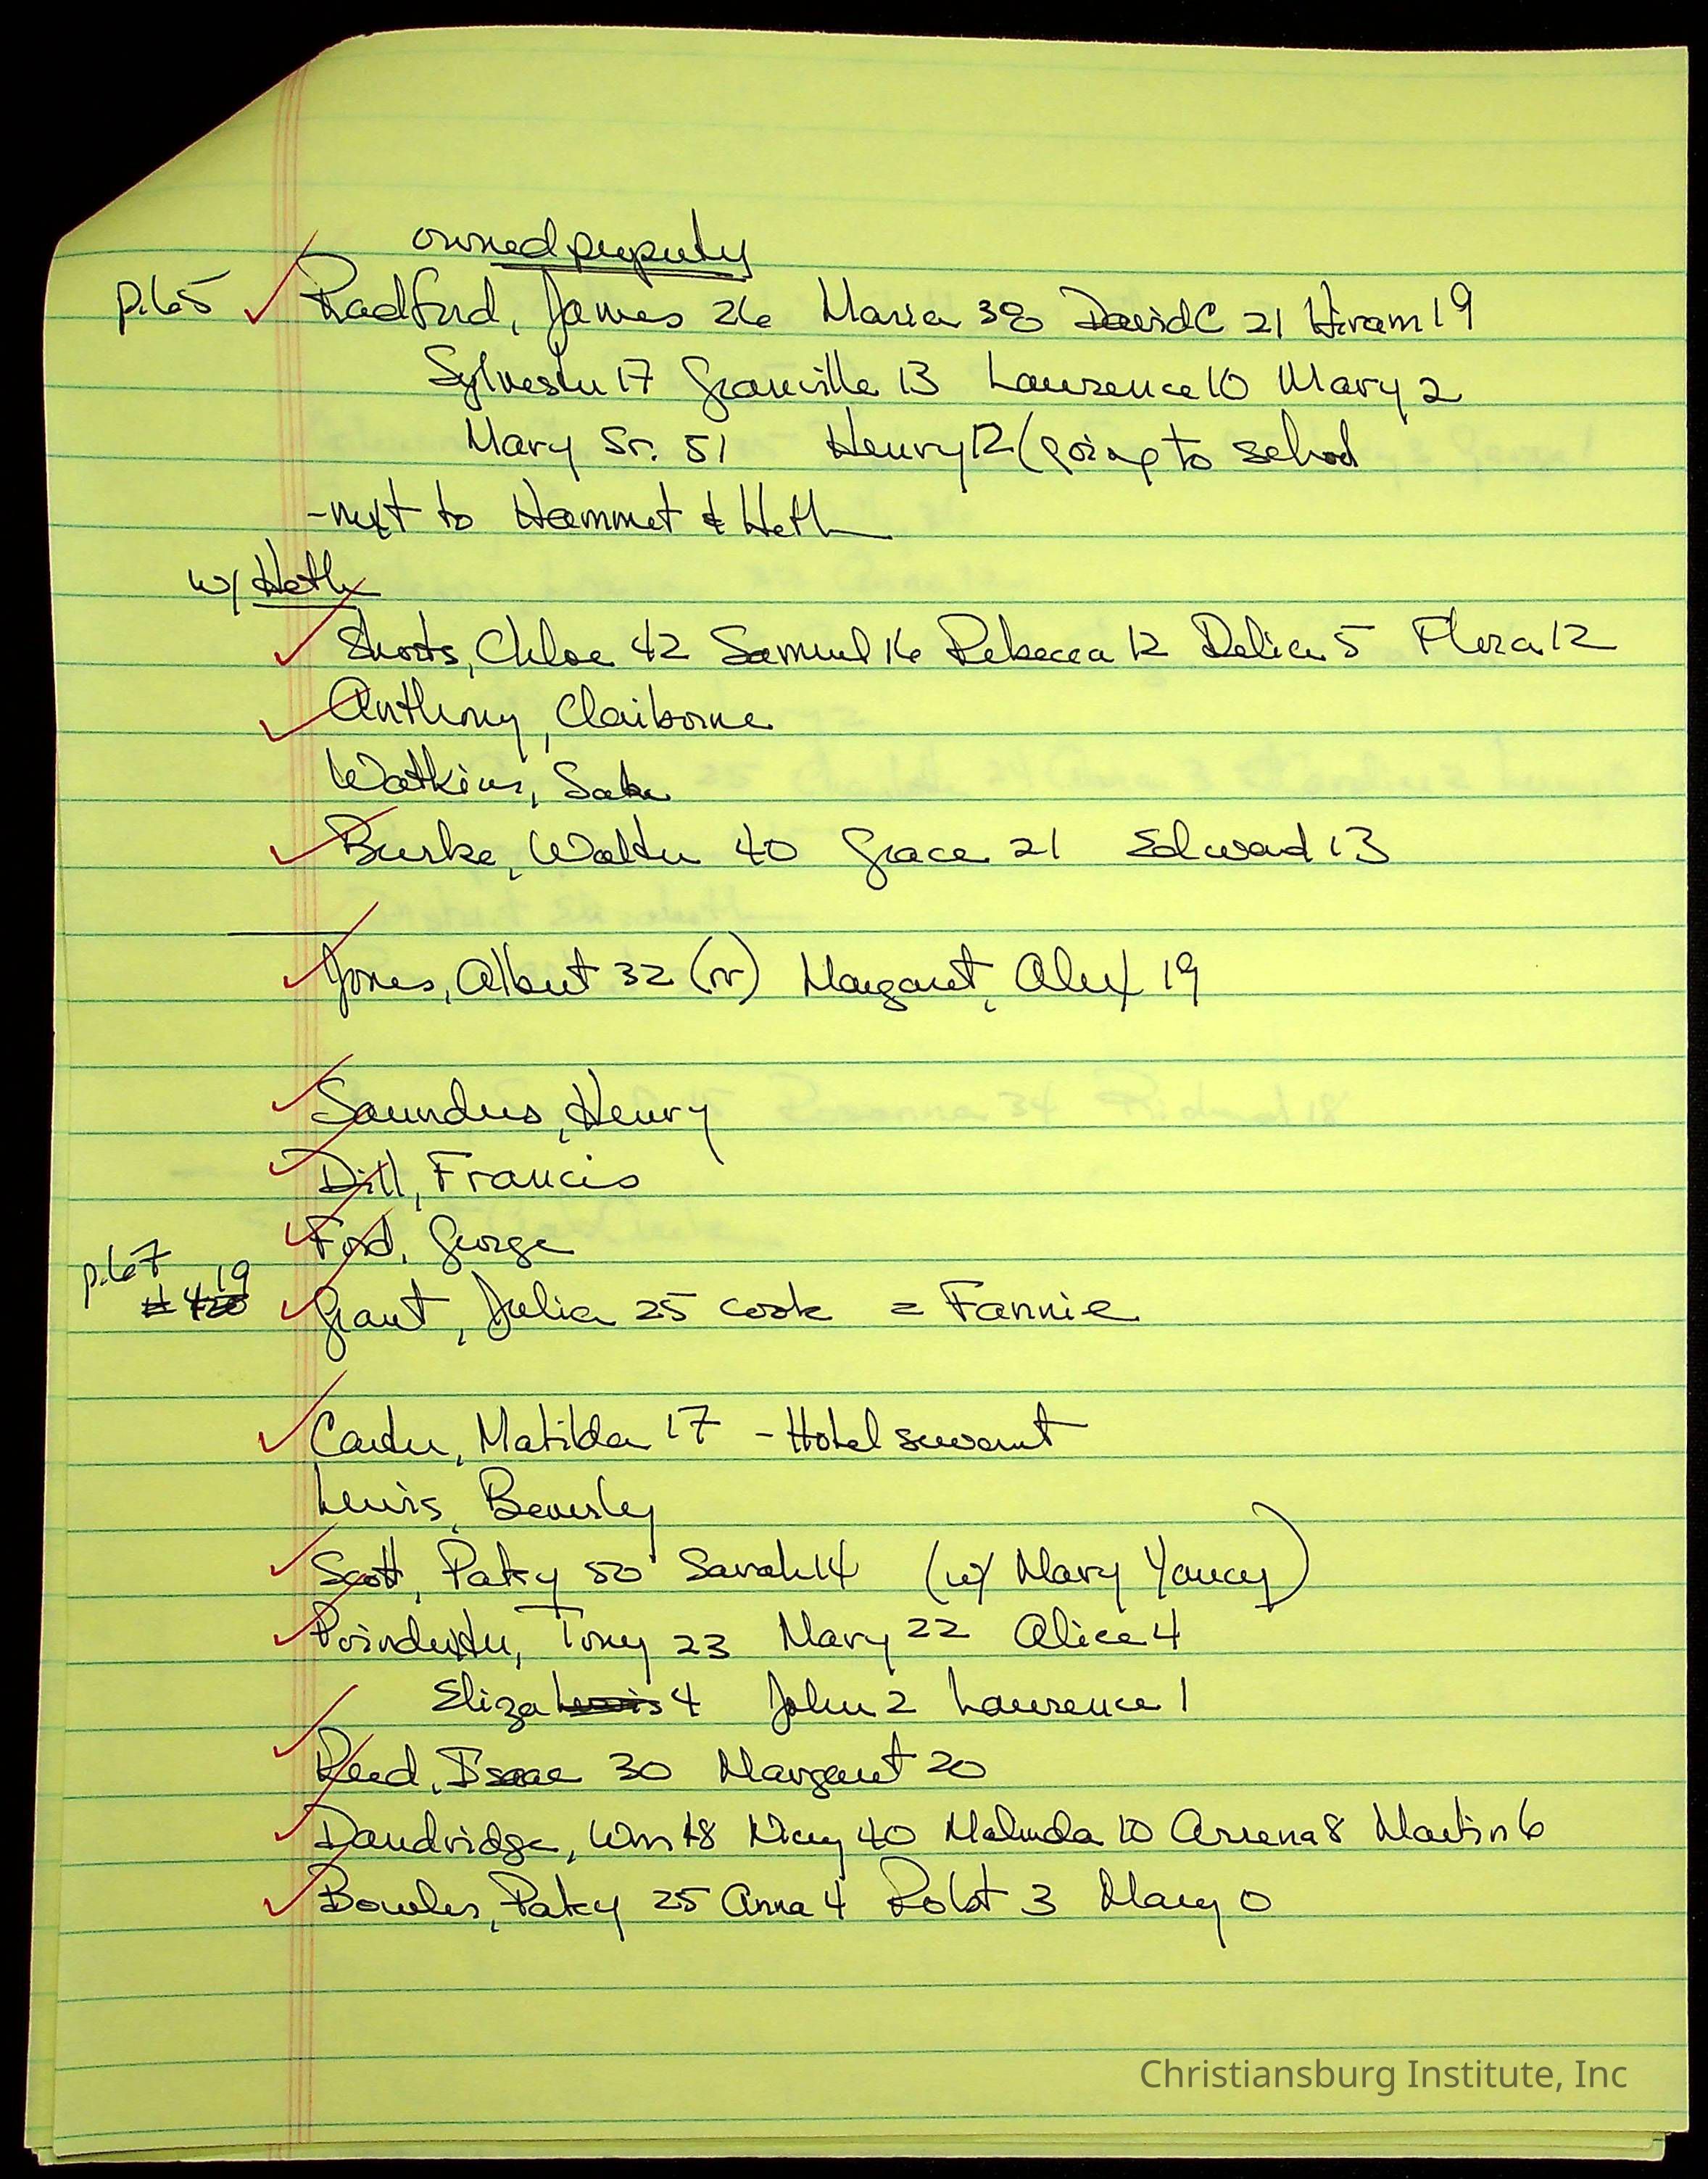 owned property
p.65 Radford, James 26 Maria 38 David C 21 Hiram 19
Sylvester 17 Granville 13 Lawrence 10 Mary 2
Mary Sr. 51 Henry 12 (going to school
- next to Hammet & Heth
w/ Heth
Shorts, Chloe 42 Samuel 16 Rebecca 12 Delia 5 Flora 12
Anthony, Claiborne
Watkins,
Burke, Walter 40 Grace 21 Edward 13
Jones, Albert 32 (rr) Margaret, Alex 19
Saunders, Henry
Dill, Francis
Ford, George
p.67
19
Grant, Julia 25 cook = Fannie
Carter, Matilda 17 - Hotel servant
Lewis, Beverley
Scott, Patsy 50 Sarah 14 (w/ Mary Yancey)
Poindexter, Tony 23 Mary 22 Alice 4
Eliza Lewis 4 John 2 Lawrence 1
Reed, Isaac 30 Margaret 20
Dandridge, Wm 48 Nicey 40 Malinda 10 Arrena 8 Martin 6
Bowles, Patsy 25 Anna 4 Robt 3 Mary 0
Christiansburg Institute, Inc